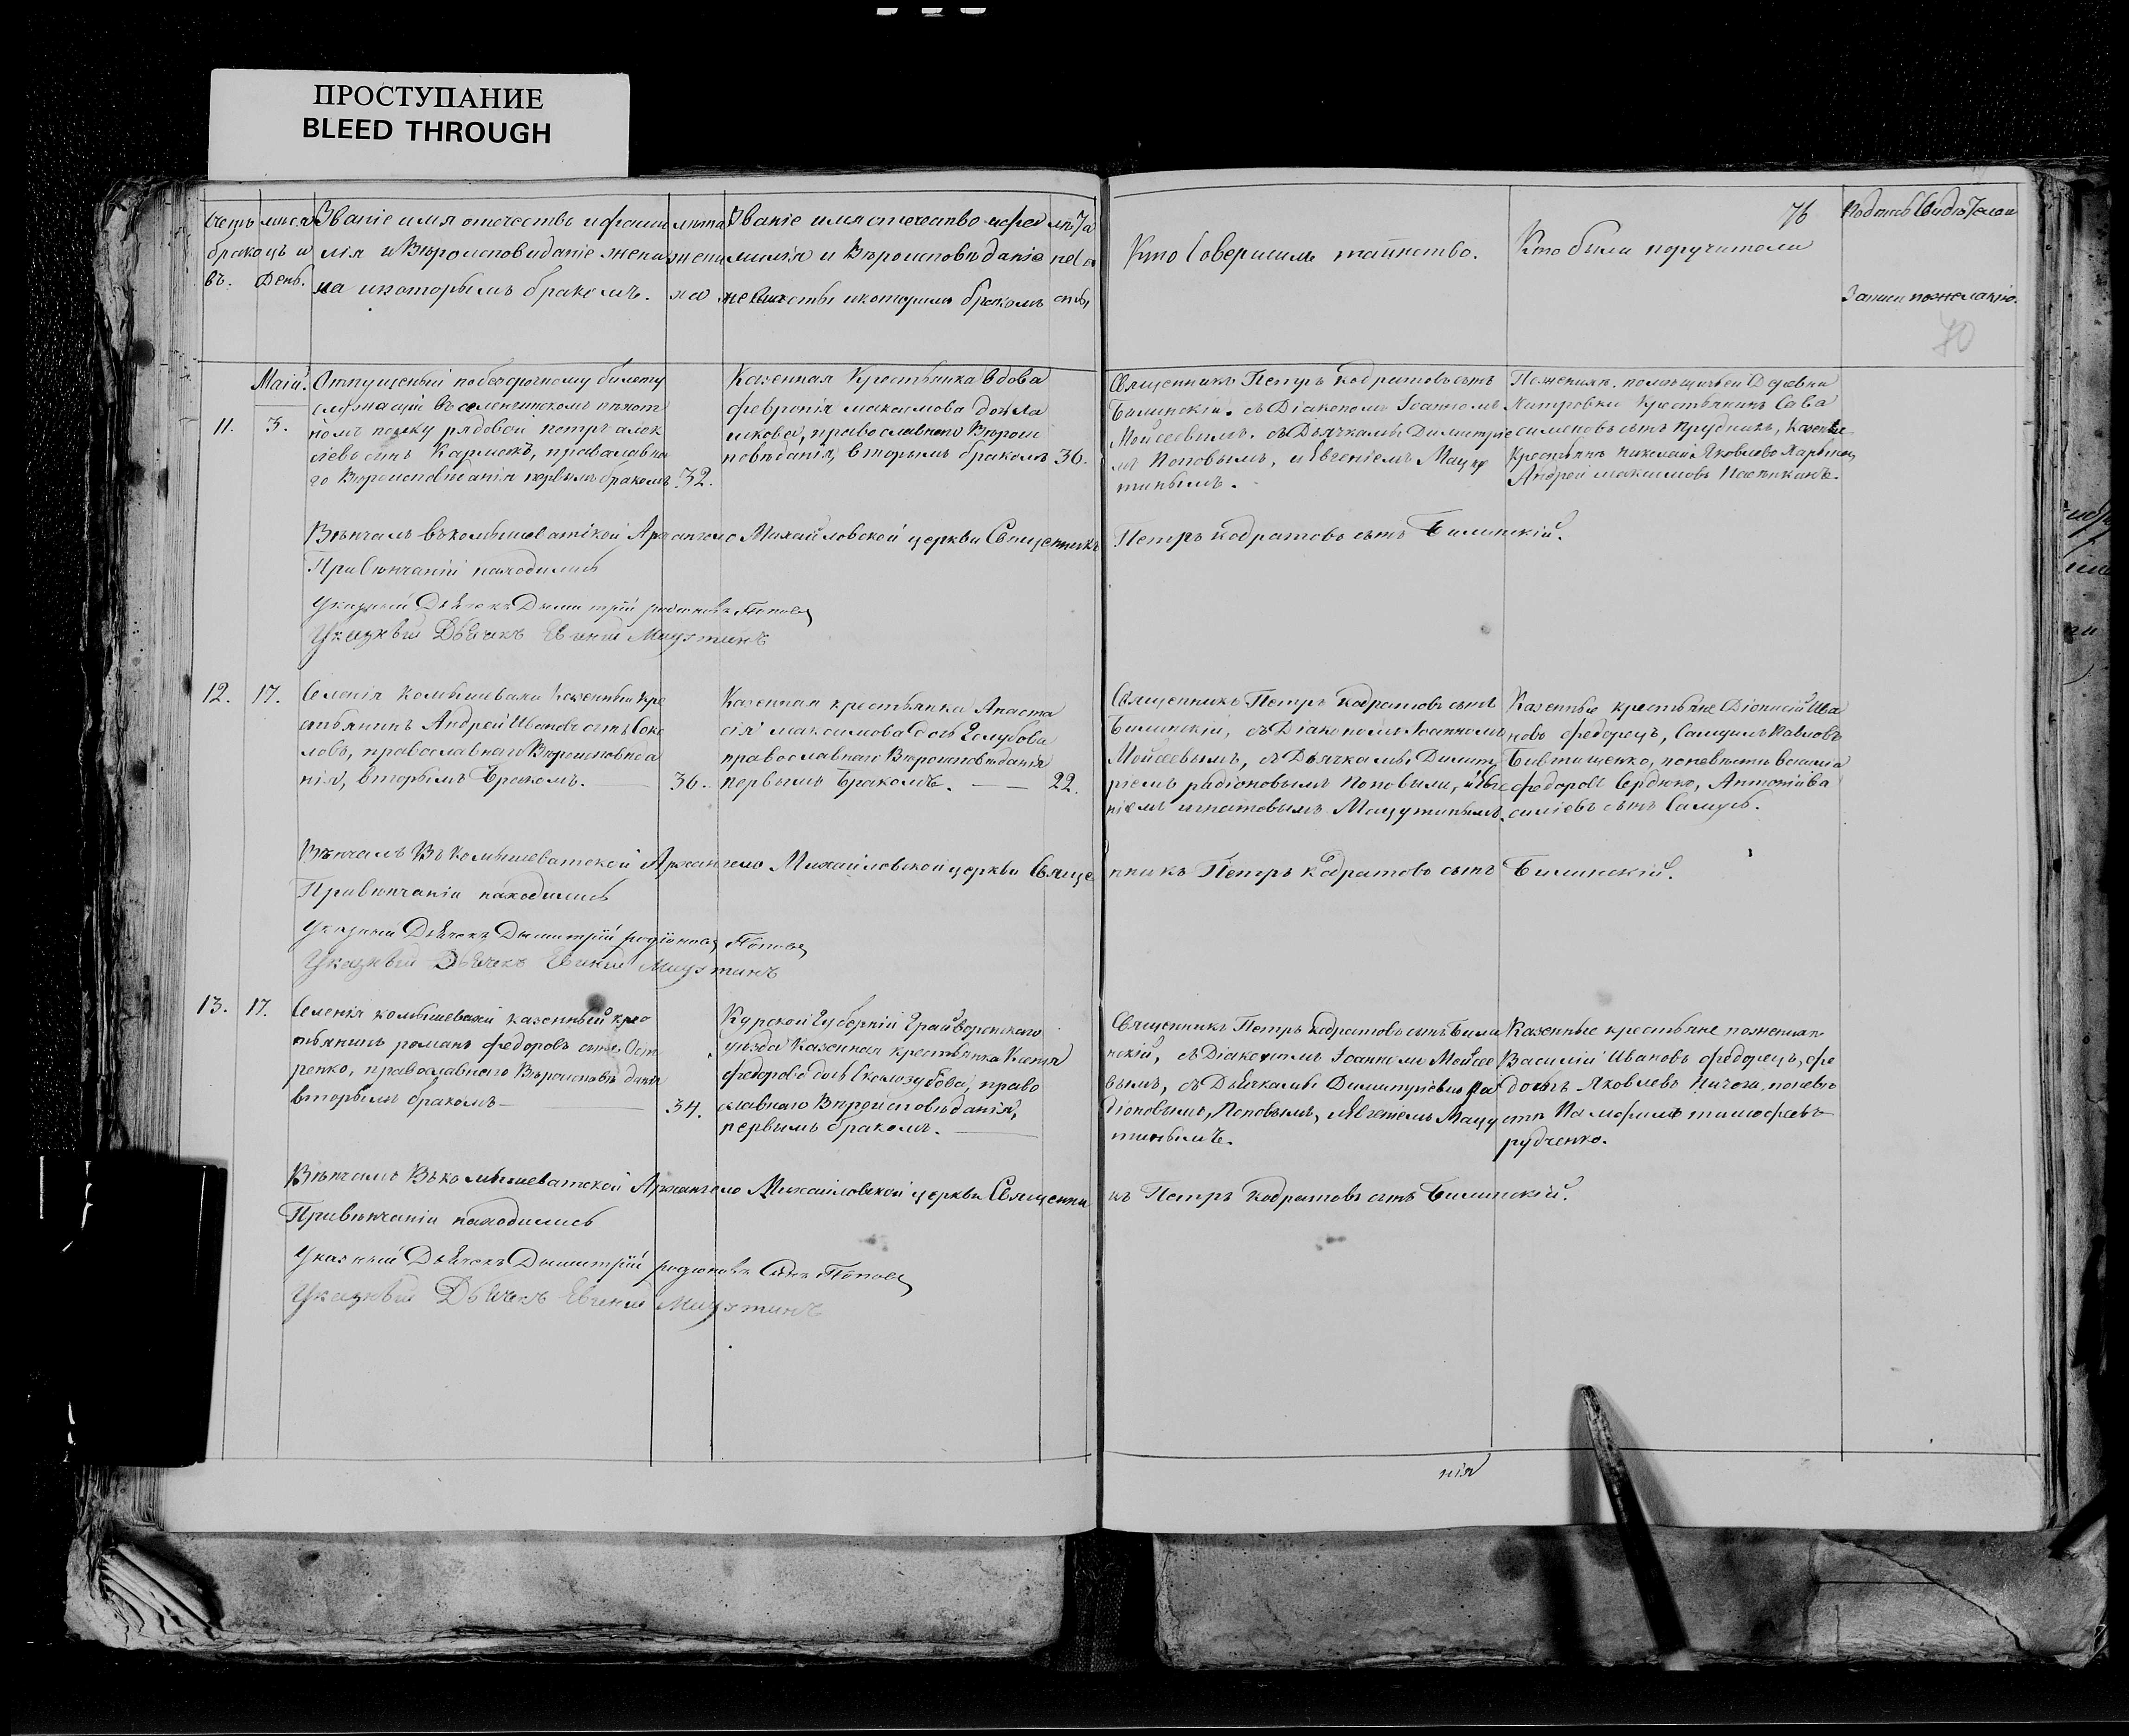 ПРОСТУПАНИЕ
BLEED THROUGH
Счетъ
брако
въ.
месяцъ и
День.
Званіе имя отечество и фами
лія и Вѣроисповиданіе жени
ха и которымъ бракомъ.
лѣта
жени
ха
Званіе имя отечество и фа
милія и Вѣроисповѣданіе
невѣсты и которимъ бракомъ
лѣта
неве
сты
Кто Совершилъ таинство.
Кто были поручители
76
Подписъ Свидѣтелей
Записи по желанію.
70
Маій.
11.
3.
Отпущеный по безсрочному билету
служащій въ селенгинскомъ пѣхот
номъ полку рядовой петръ алек
сѣевъ сынъ Кармокъ, православна
го Вѣроисповѣданія первымъ бракомъ
32.
Казенная Крестьянка Вдова
февронія максимова дочь Ла
шкова, православного Вѣрои
повѣданія, вторымъ бракомъ
30.
Священникъ Петръ кодратовъ сынъ
Билинскій. съ Діакономъ Іоанномъ
Мойсеевымъ. съ Дьячками Димитріе
мъ Поповымъ, и Евгеніемъ Мацу
тинымъ.
По женихѣ. помѣщичьей Деревни
Петровки Крестьянинъ Сава
симеоновъ сынъ Прудникъ, Казенные
Крестьяне Николай Яковлевъ Харьковец
Андрей максимовъ Пасѣчкинъ.
Вѣнчалъ въ комышеватской Архангело Михайловской церкви Священникъ Петръ кодратовъ сынъ Билинскій.
При Вѣнчаніи находились
Указный Дьячекъ Дымитрій родионовъ Поповъ
Указный Дьячекъ Евгений Мацутинъ
12.
17.
Селенія Комышевахи Казенный Кре
стьянинъ Андрей Ивановъ сынъ Соко
ловъ, православнаго Вѣроисповѣда
нія, вторымъ Бракомъ.
36.
Казенная крестьянка Анаста
сія максимова дочь Голубова
православнаго Вѣроисповѣданія
первымъ Бракомъ.
22.
Священникъ Петръ кодратовъ сынъ
Билинскій, съ Діакономъ Іоанномъ
Мойсеевымъ, съ Дьячками, Димит
ріемъ радіоновымъ Поповымъ, и Евге
ніемъ игнатовымъ Мацутинымъ.
Казенные крестьяне Діонисій Ива
новъ федорецъ, Самуилъ Павловъ
Бивтищенко, по невѣстѣ василій
федоровъ Сердюкъ, Антоній ва
силіевъ сынъ Самусь.
Вѣнчалъ Въ Комышеватской Архангело Михайловской церкви Священникъ Петръ кодратовъ сынъ Билинскій.
При вѣнчаніи находились
Указный Дьячекъ Дымитрій родіоновъ Поповъ
Указный Дьячекъ Евгений Мацутинъ
13.
17.
Селенія комышевахи казенный кре
стьянинъ романъ федоровъ сынъ Ост
ренко, православнаго Вѣроисповѣданія
вторымъ бракомъ
34.
Курской Губерніи Грайворонскаго
уѣзда Казенная крестьянка Ксенія
федорова дочь Скалозубова, право
славнаго Вѣроисповѣданія,
первымъ бракомъ.
Священникъ Петръ кодратовъ сынъ Били
нскій, съ Діакономъ Іоанномъ Мойсее
вымъ, съ Дьячкамы Димитріевмъ Ра
діоновымъ, Поповымъ, и Евгеніемъ Мацу
тинымъ.
Казенные крестьяне по женихѣ
Василій Ивановъ федорецъ, фе
дотъ Яковлевъ Ничога, по невѣ
стѣ Памфилъ тимофеевъ
рудченко.
Вѣнчалъ Въ комышеватской Архангело Михайловской церкви Священникъ Петръ кодратовъ сынъ Билинскій.
При вѣнчаніи находились
Указный Дьячекъ Дымитрій родионовъ Сынъ Поповъ
Указный Дьячекъ Евгений Мацутинъ
нія